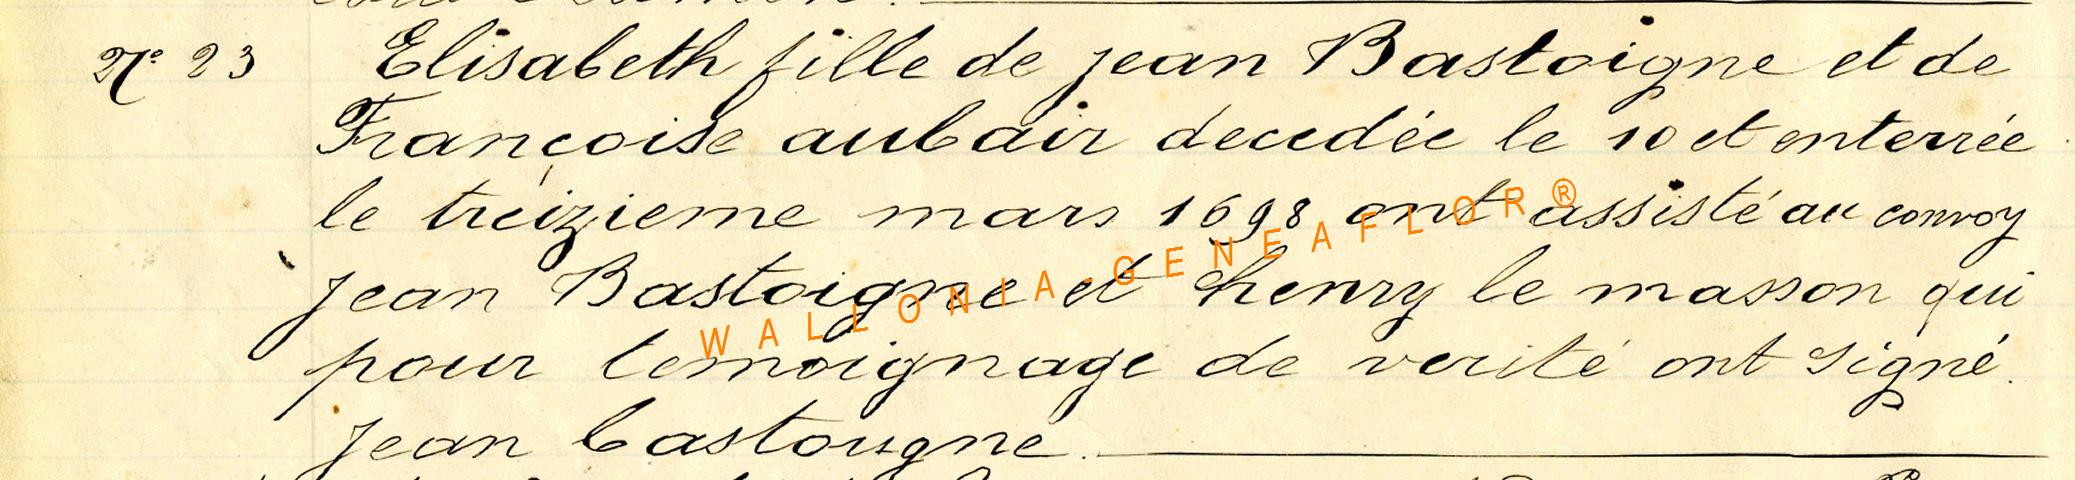 N° 23 Elisabeth fille de jean Bastoigne et de
Françoise aubair decedée le 10 et enterrée
le treizieme mars 1698 ont assisté au convoy
jean Bastoigne et henry le masson qui
pour temoignage de verité ont signé.
jean bastougne.
WALLONIA-GENEAFLOR®